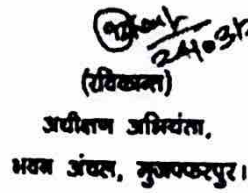 24/03/2
(रविकान्त)
अधीक्षण अभियंता,
भवन अंचल, मुजफ्फरपुर।